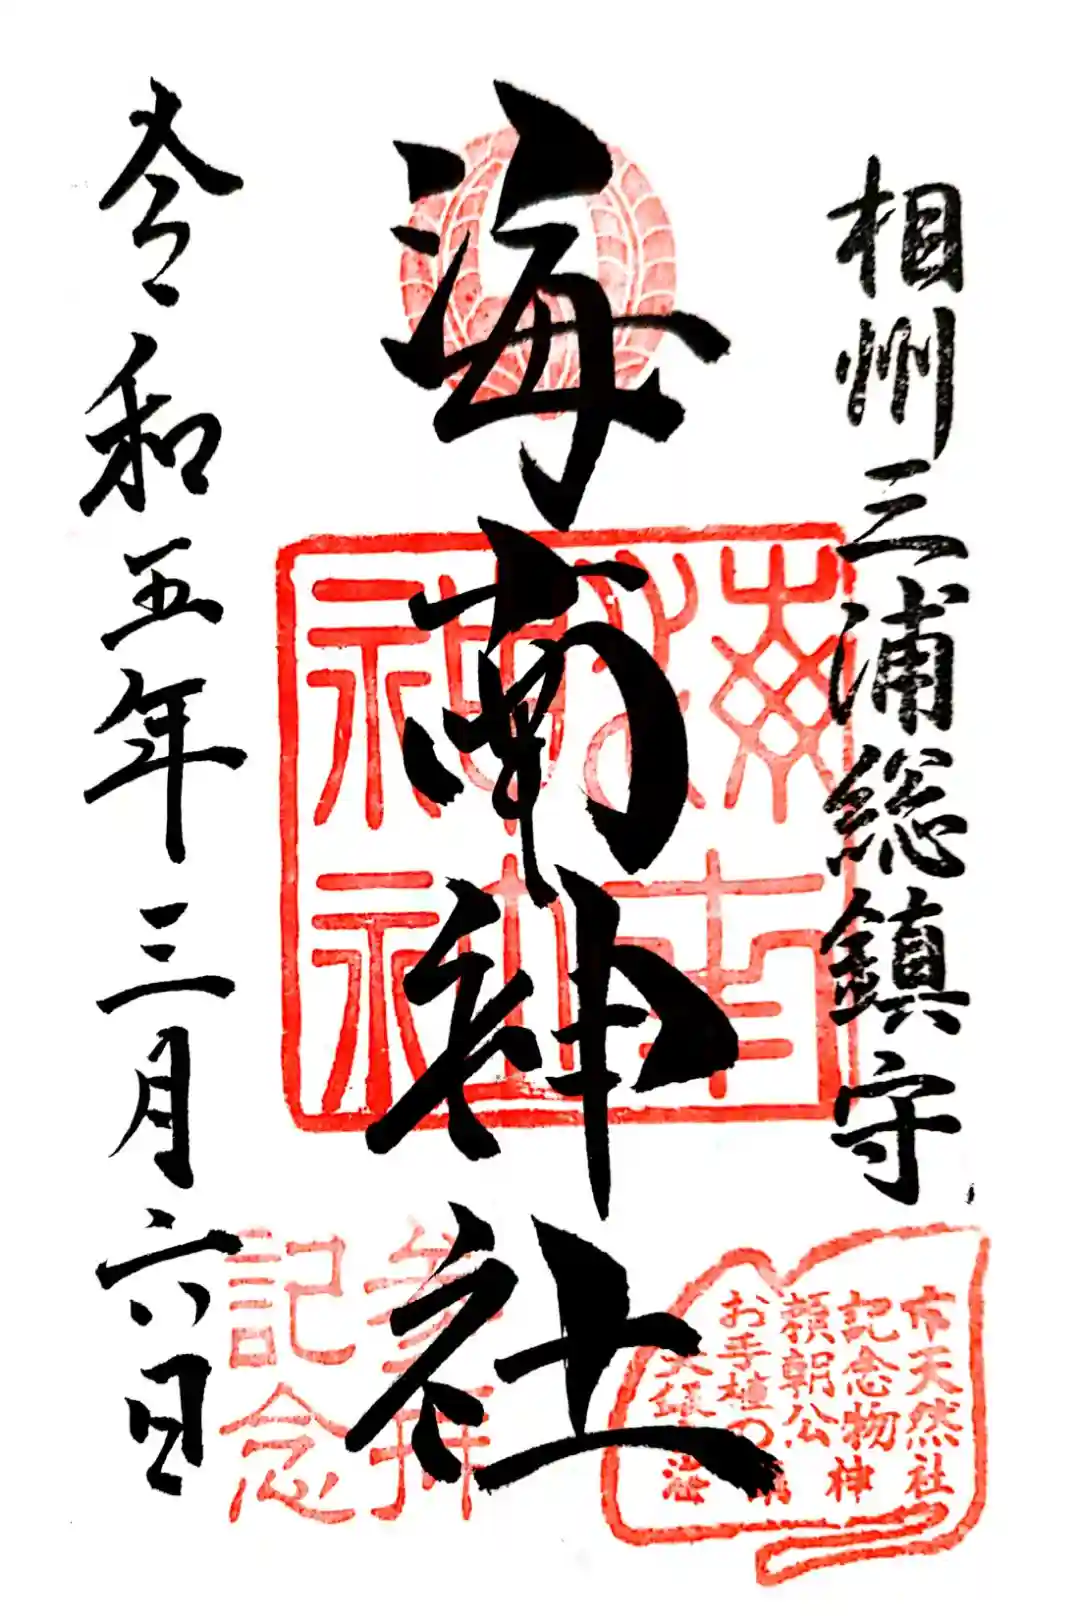 相州三浦総鎮守
海南神社
令和五年三月六日
海南神社
参拝
記念
市天然
記念物
頼朝公
お手植の
海南神社